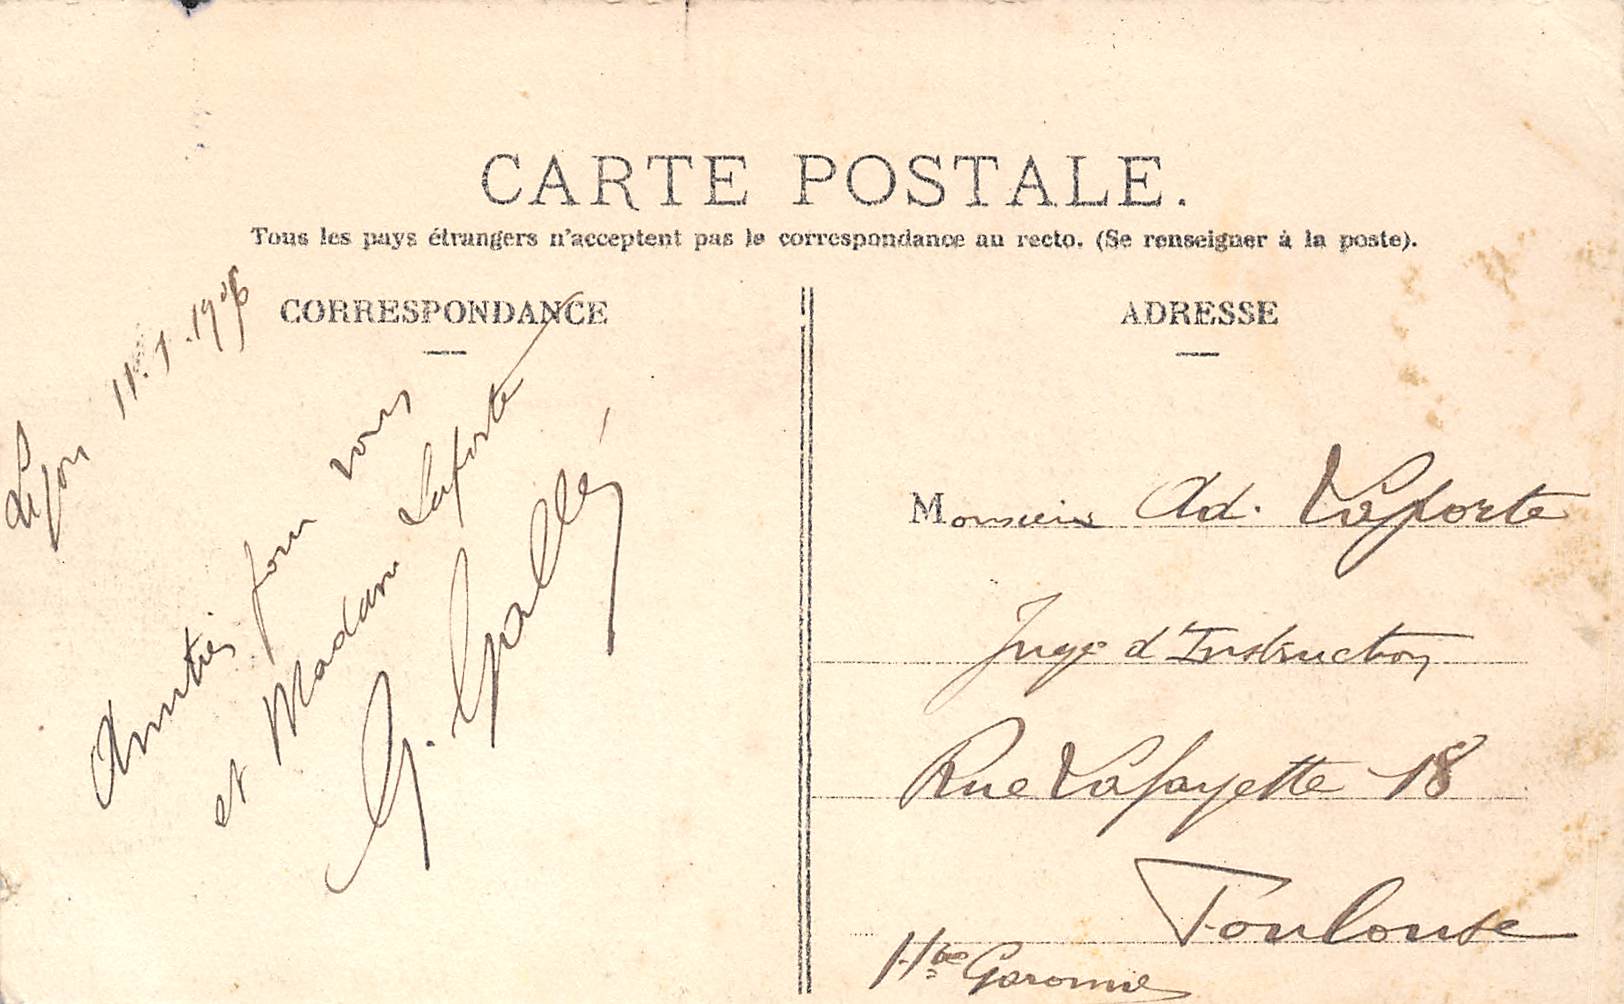 CARTE POSTALE.
Tous les pays étrangers n'acceptent pas la correspondance au recto. (Se renseigner à la poste).
CORRESPONDANCE
Lyon 11.1.1906
Amitiés pour vous
et Madame Laporte
G. Gallé
ADRESSE
Monsieur Ad. Laporte
Juge d'Instruction
Rue Lafayette 18
Toulouse
Hte Garonne